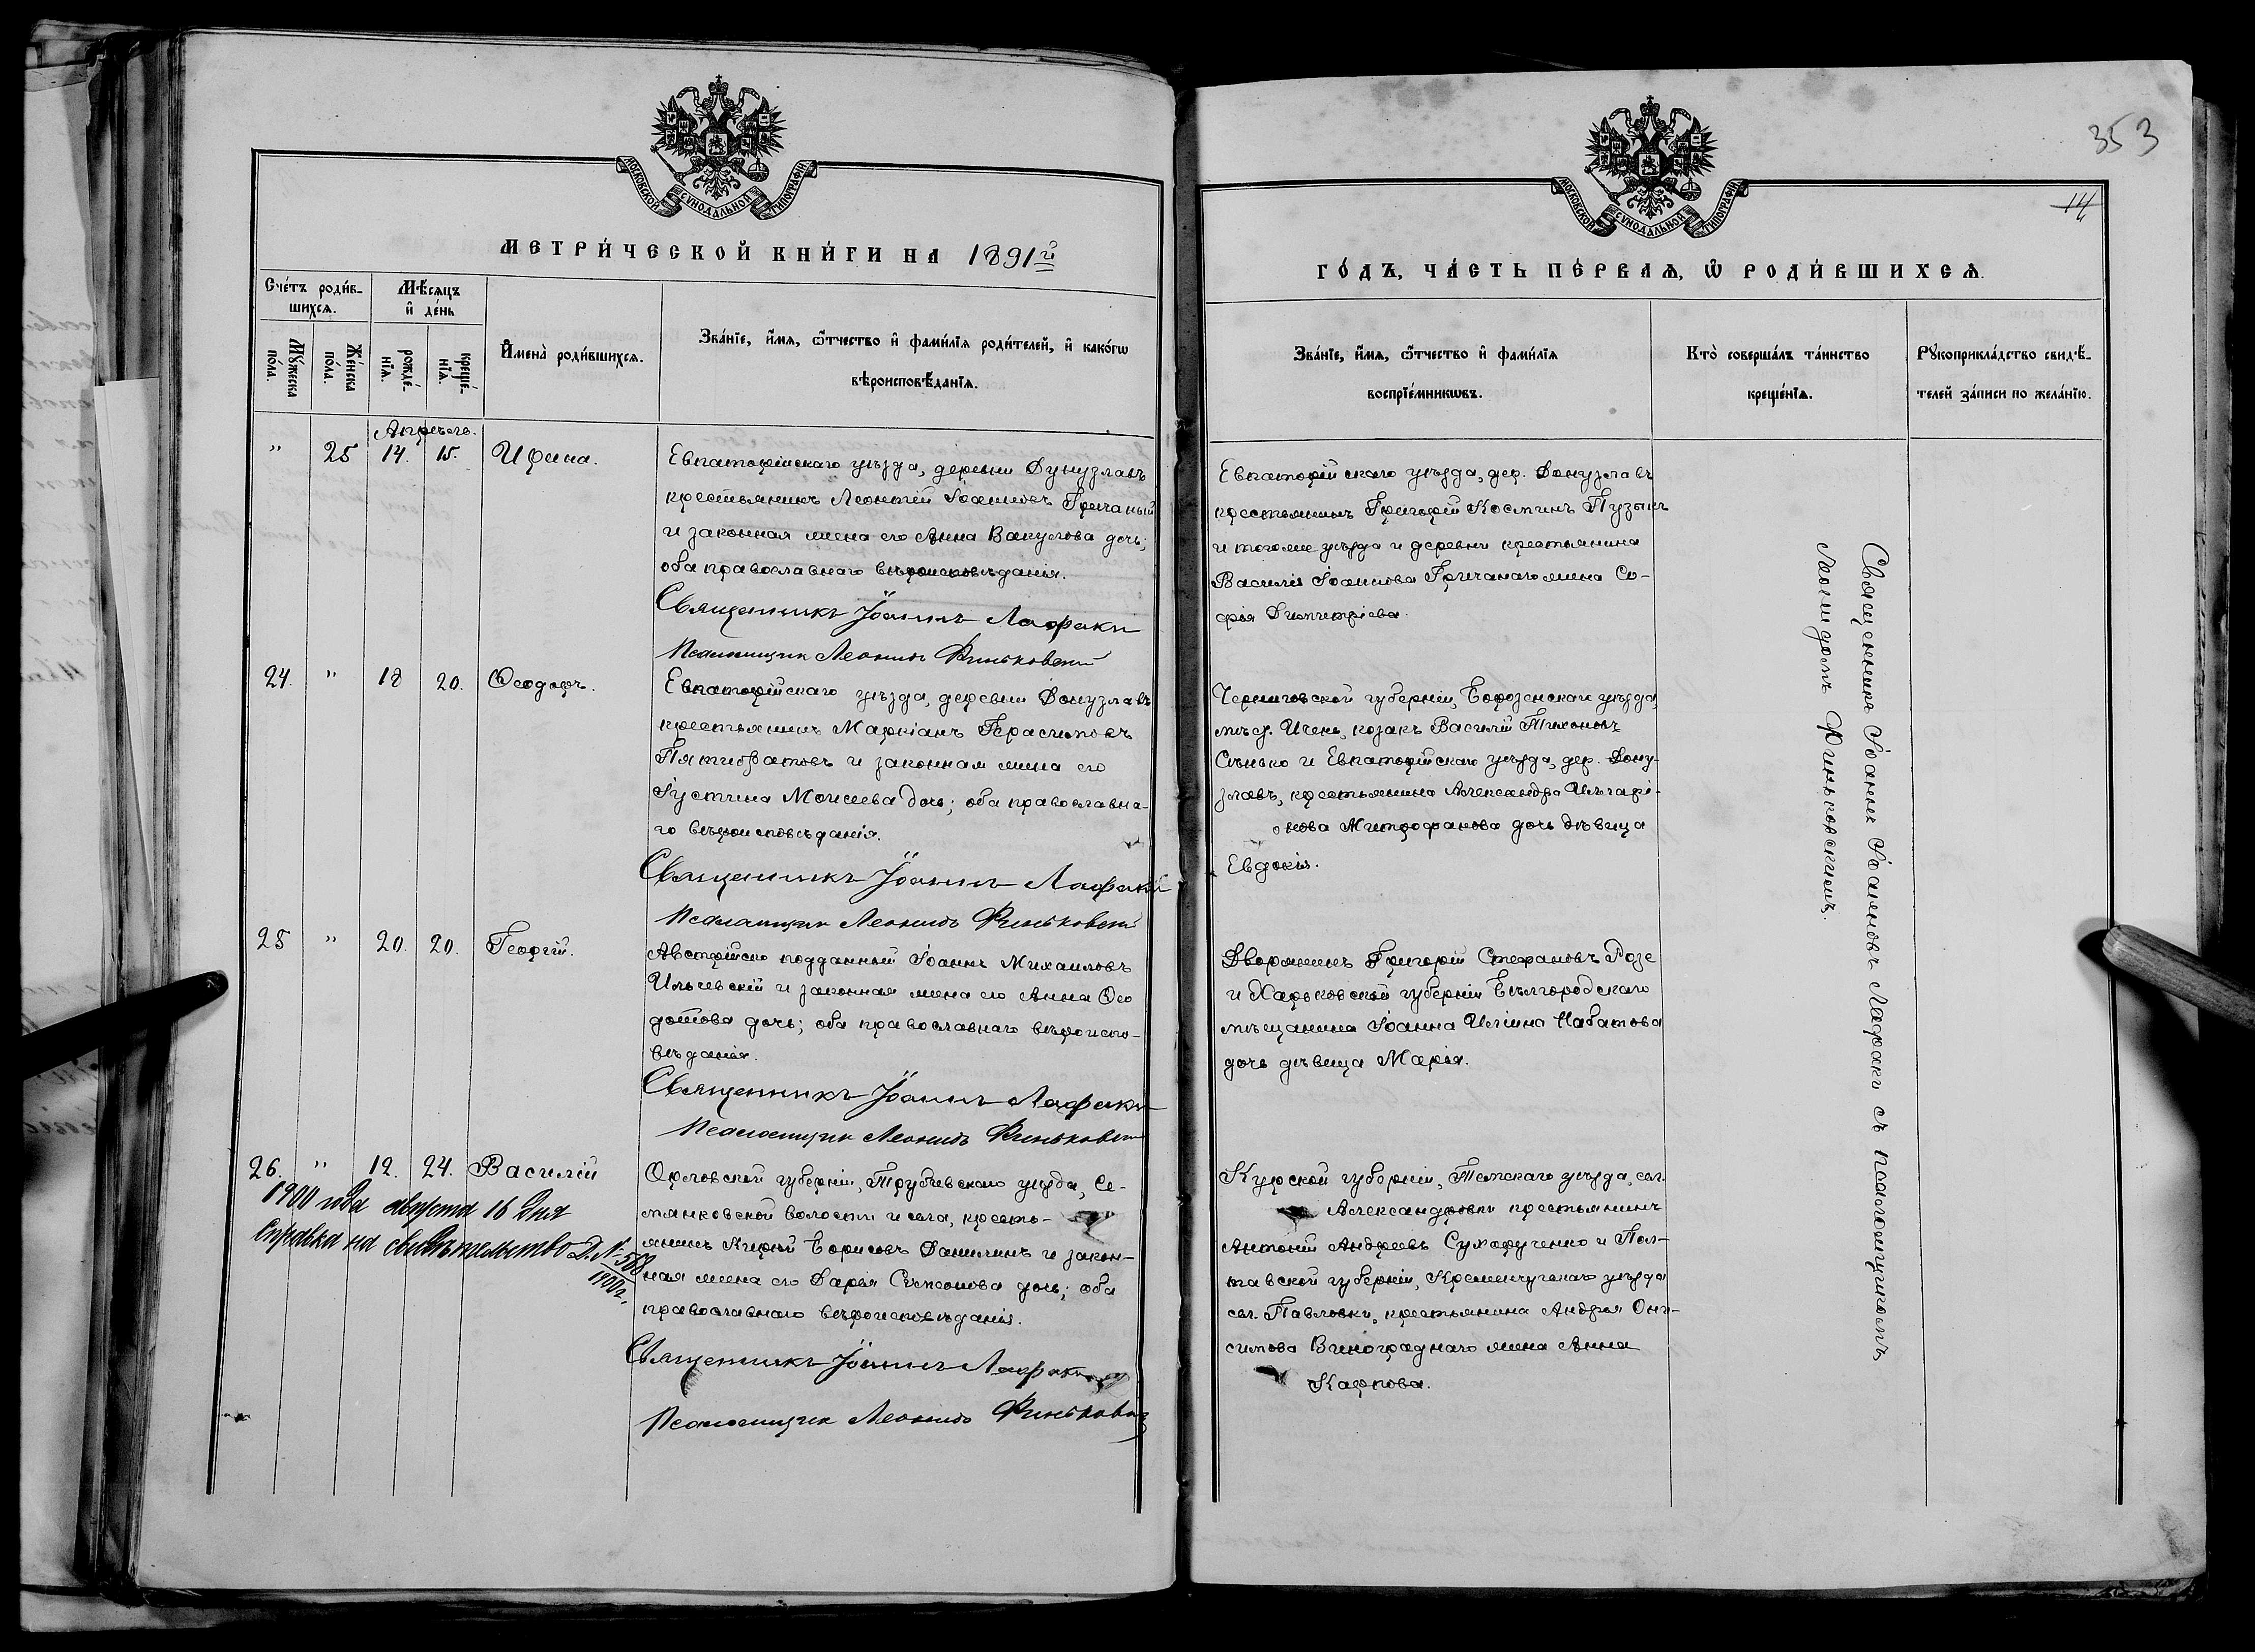 353
14
МОСКОВСКОЙ СѴНОДАЛЬНОЙ ТИПОГРАФІИ
МЕТРИ́ЧЕСКОЙ КНИ́ГИ НА 1891й
Сче́тъ роди́в-
шихсѧ.
Мꙋ́жеска по́ла.
Же́нска по́ла.
Мѣ́сѧцъ
и҆ де́нь
рожде́-
нїѧ.
креще́-
нїѧ.
И҆мена̀ роди́вшихсѧ.
Зва́нїе, и҆́мѧ, ѻ҆́тчество и҆ фами́лїѧ роди́телей, и҆ како́гѡ
вѣроисповѣ́данїѧ.
Апрѣль.
" 25 14. 15. Ирина.
Евпаторійскаго уѣзда, деревни Дунузлавъ
крестьянинъ Леонтій Іоанновъ Гричаный
и законная жена его Анна Вакулова дочь;
оба православнаго вѣроисповѣданія.
Священникъ Іоаннъ Лафаки
Псаломщикъ Леонидъ Финьковскій
24. " 18 20. Ѳеодоръ.
Евпаторійскаго уѣзда, деревни Донузлавъ
крестьянинъ Маркіанъ Герасимовъ
Пятибратовъ и законная жена его
Іустина Моисеева дочь; оба православна-
го вѣроисповѣданія.
Священникъ Іоаннъ Лафаки
Псаломщикъ Леонидъ Финьковскій
25 " 20. 20. Георгій.
Австрійско подданный Іоаннъ Михаиловъ
Ильевскій и законная жена его Анна Ѳео
дотова дочь; оба православнаго вѣроиспо-
вѣданія.
Священникъ Іоаннъ Лафаки
Псаломщикъ Леонидъ Финьковскій
26. " 12. 24. Василій
1900 года августа 16 дня
справка на свидѣтельство Д. № 568
1900 г.
Орловской губерніи, Трубчевскаго уѣзда, Се-
мянковской волости и села, кресть-
янинъ Кирей Борисовъ Данилинъ и закон-
ная жена его Дарія Симеонова дочь; оба
православнаго вѣроисповѣданія.
Священникъ Іоаннъ Лафаки
Псаломщикъ Леонидъ Финьковскій
МОСКОВСКОЙ СѴНОДАЛЬНОЙ ТИПОГРАФІИ
ГО́ДЪ, ЧА́СТЬ ПЕ́РВАѦ, Ѡ҆ РОДИ́ВШИХСѦ.
Зва́нїе, и҆́мѧ, ѻ҆́тчество и҆ фами́лїѧ
воспрїе́мникѡвъ.
Кто̀ соверша́лъ та́инство
креще́нїѧ.
Рꙋкоприкла́дство свидѣ́-
телей за́писи по жела́нїю.
Евпаторійскаго уѣзда, дер. Донузлавъ
крестьянинъ Григорій Косминъ Пузынъ
и тогоже уѣзда и деревни крестьянина
Василія Іоаннова Гричанаго жена Со-
фія Димитріева.
Черниговской губерніи, Борозенскаго уѣзда,
мѣст. Ичень, козакъ Василій Тихоновъ
Сѣнько и Евпаторійскаго уѣзда, дер. Дону-
злавъ, крестьянина Александра Илларі-
онова Митрофанова дочь дѣвица
Евдокія.
Дворянинъ Григорій Стефановъ Розе
и Харьковской губерніи Бѣлгородскаго
мѣщанина Іоанна Иліина Набатова
дочь дѣвица Марія.
Курской губерніи, Темскаго уѣзда, сел.
Александровки крестьянинъ
Антоній Андреевъ Сухорученко и Пол-
тавской губерніи, Кременчугскаго уѣзда
сел. Павловки, крестьянина Андрея Они-
симова Винограднаго жена Анна
Карпова.
Священникъ Іоаннъ Іоанновъ Лафаки съ псаломщикомъ
Леонидомъ Финьковскимъ.